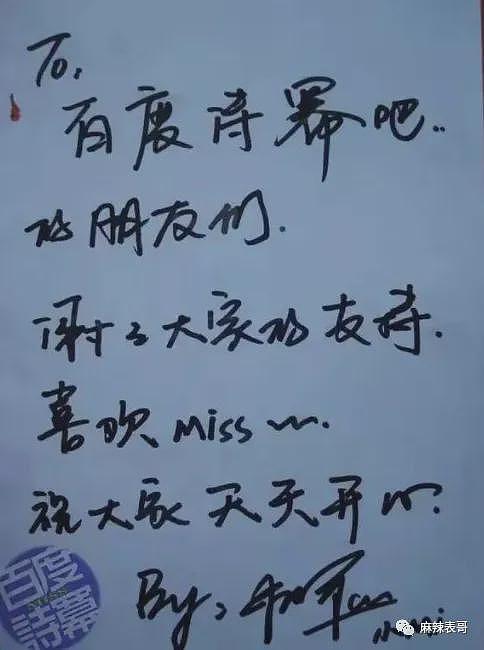 To,
百度诗幂吧..
的朋友们.
谢了大家的支持.
喜欢Miss~~.
祝大家天天开心.
By,
百度
MISS
詩幂
麻辣表哥